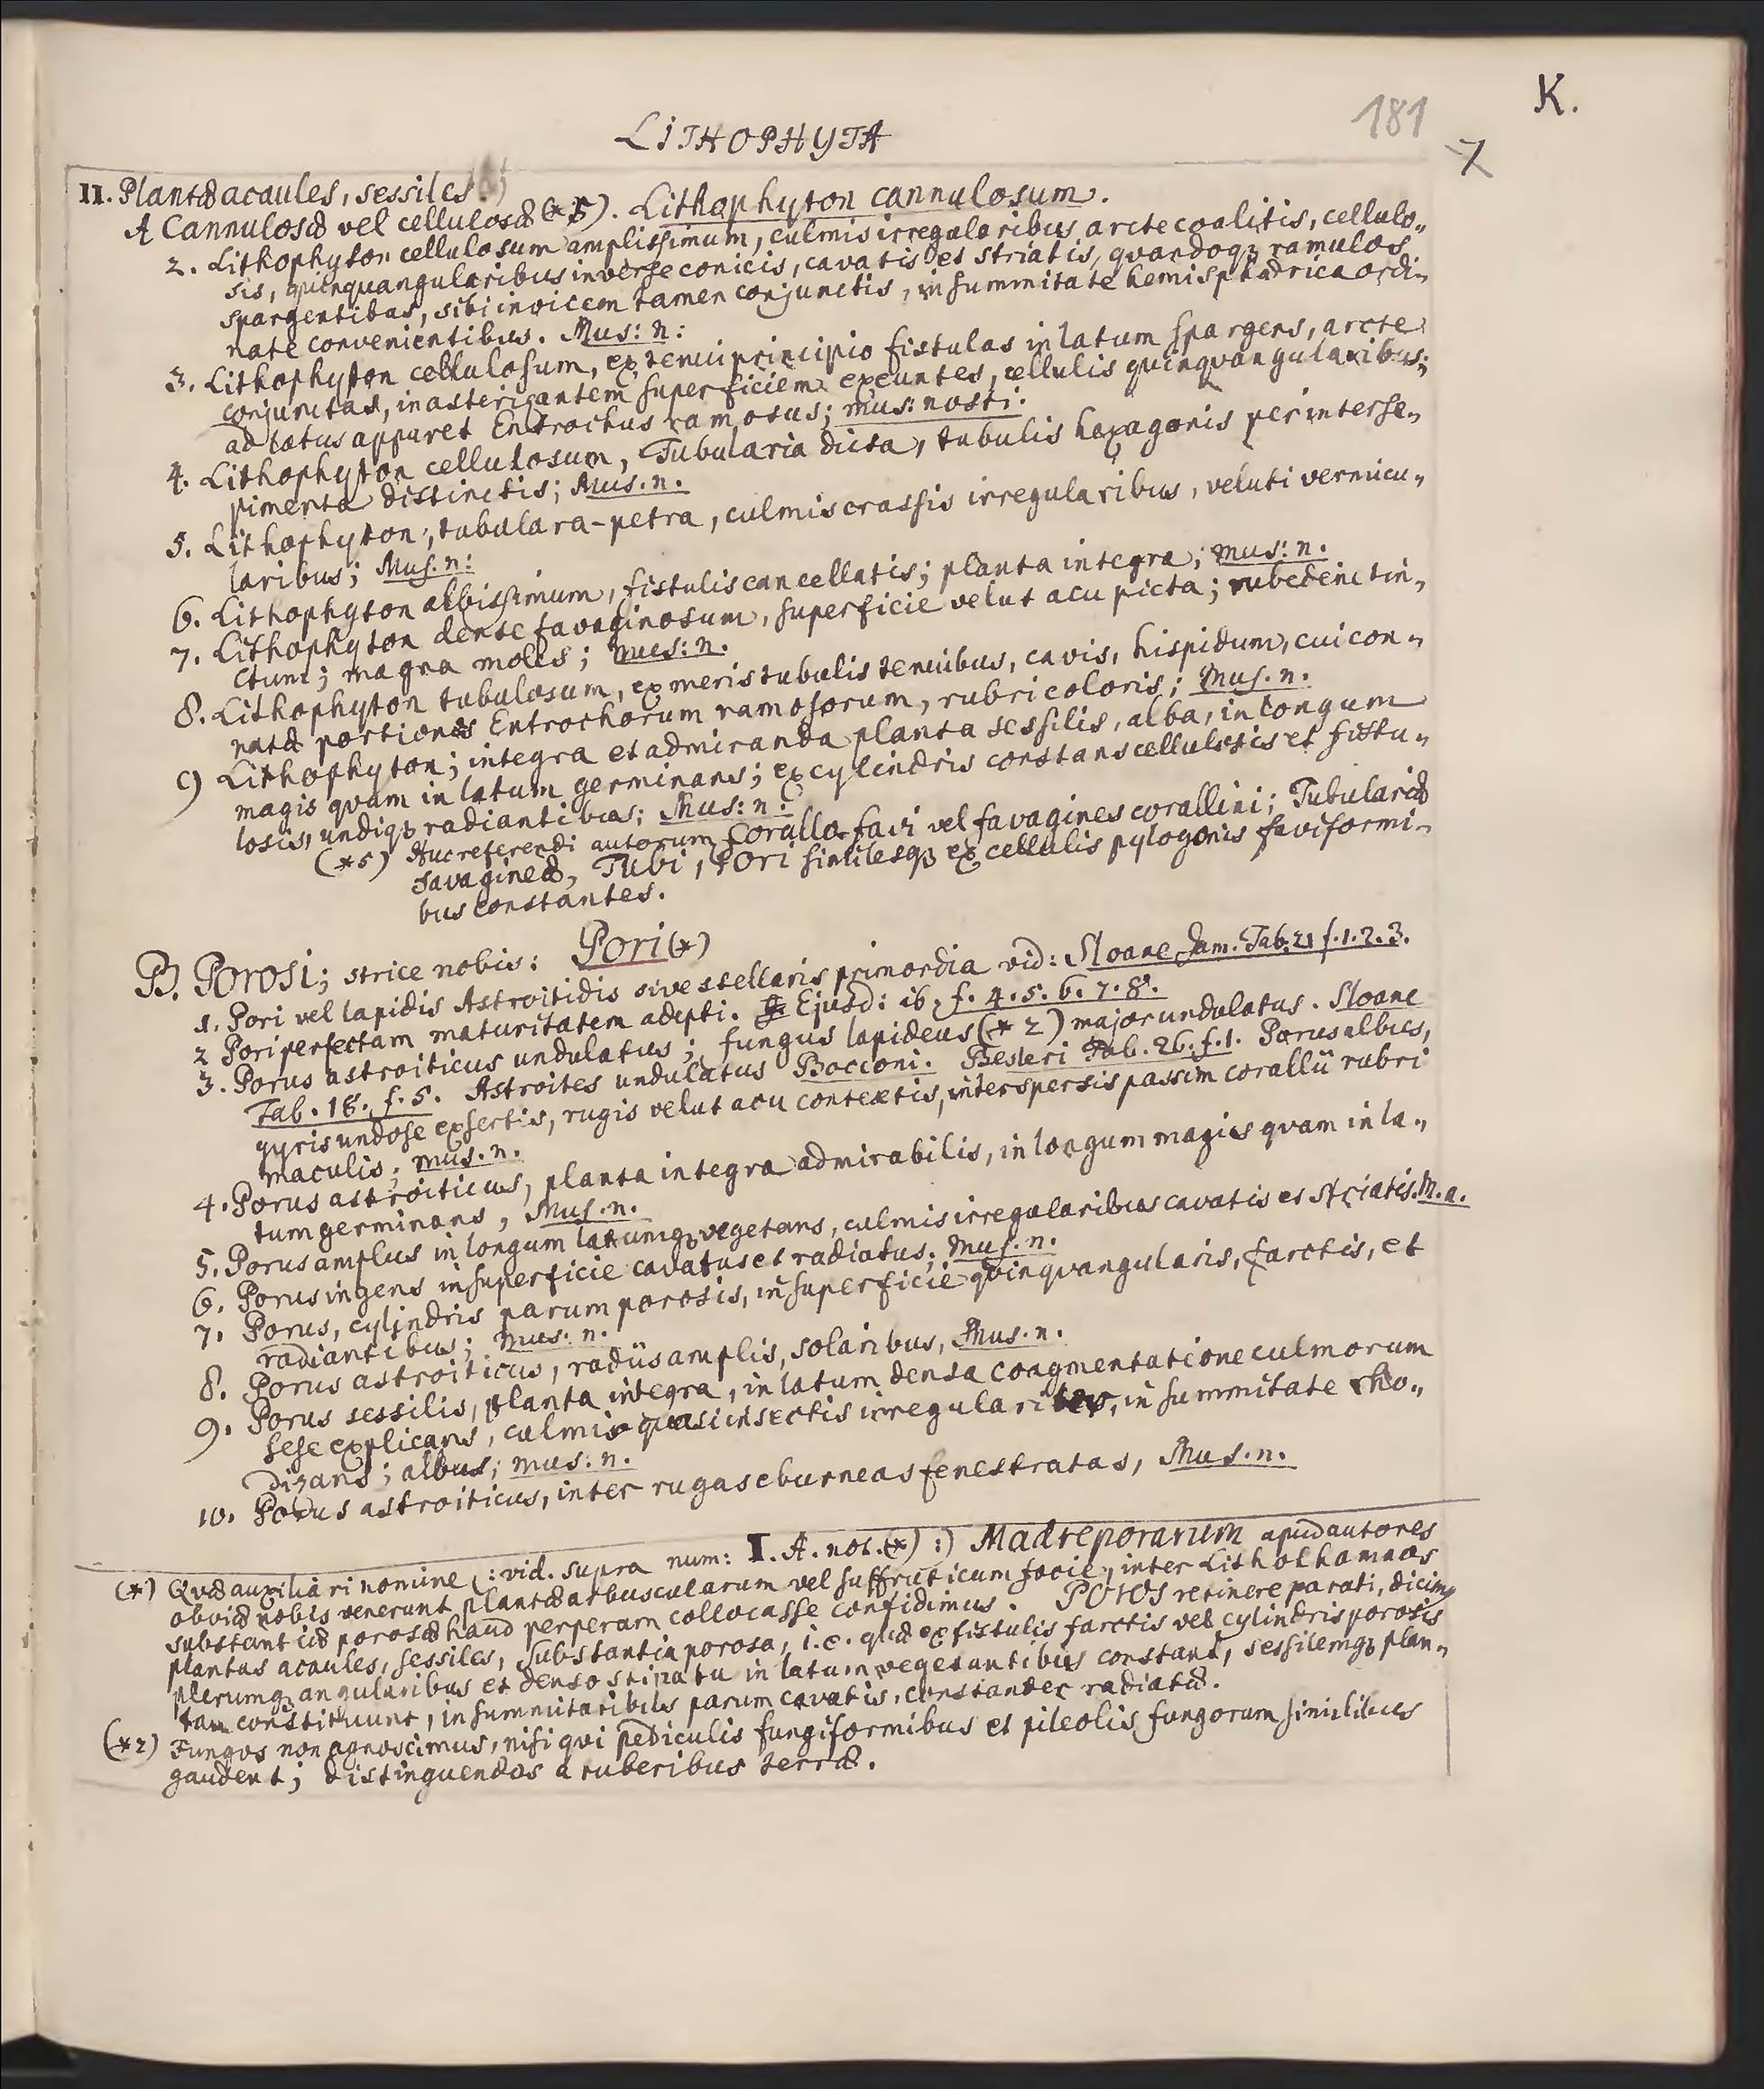 K.
181
7
LITHOPHYTA
II. Plantæ acaules, sessiles
A Cannulosæ vel cellulosæ (* 5). Lithophyton cannulosum.
2. Lithophyton cellulosum amplissimum, culmis irregularibus arcte coalitis, cellulo„
sis, quinquangularibus inverse conicis, cavatis et striatis, quandoqȝ ramulos
spargentibus, sibi invicem tamen conjunctis, in summitate hemisphærica ordi„
nate convenientibus. Mus: n:
3. Lithophyton cellulosum, ex tenui principio fistulas in latum spargens, arcte
conjunctas, in asterizantem superficiem exeuntes, cellulis quinquangularibus;
ad latus apparet Entrochus ramosus; mus: nostr.
4. Lithophyton cellulosum, Tubularia dicta, tubulis hexagonis per interse„
pimenta distinctis; Mus. n.
5. Lithophyton; tubulara-petra, culmis crassis irregularibus, veluti vermicu„
laribus; Mus. n:
6. Lithophyton albissimum, fistulis cancellatis; planta integra; mus: n.
7. Lithophyton dense favaginosum, superficie velut acu picta; rubedine tin„
ctum; magna moles; mus: n.
8. Lithophyton tubulosum, ex meris tubulis tenuibus, cavis, hispidum, cui con„
natæ portiones Entrochorum ramosorum, rubri coloris; Mus. n.
9 Lithophyton; integra et admiranda planta sessilis, alba, in longum
magis quam in latum germinans; ex cylindris constans cellulosis et fistu„
losis, undiqȝ radiantibus; Mus: n:
(*5) Huc referendi autorum Corallo-favi vel favagines corallini; Tubulariæ
favagineæ, Tubi, Pori similesqȝ ex cellulis pylogonis faviformi„
bus constantes.
B. Porosi; strice nobis: Pori (*)
1. Pori vel lapidis Astroitidis sive stellaris primordia vid: Sloane Jam. Tab. 21 f. 1. 2. 3.
2 Pori perfectam maturitatem adepti. Ejusd: ib. f. 4. 5. 6. 7. 8.
3. Porus astroiticus undulatus; fungus lapideus (* 2) major undulatus. Sloane
Tab. 18. f. 5. Astroites undulatus Bocconi. Besleri Tab. 26. f. 1. Porus albus,
gyris undose exsertis, rugis velut acu contextis, interspersis passim corallii rubri
maculis; mus. n.
4. Porus astroiticus, planta integra admirabilis, in longum magis quam in la„
tum germinans, Mus. n.
5. Porus amplus in longum latumqȝ vegetans, culmis irregularibus cavatis et striatis. M. n.
6. Porus ingens in superficie cavatus et radiatus; Mus. n.
7. Porus, cylindris parum porosis, in superficie quinquangularis, farctis, et
radiantibus; mus: n.
8. Porus astroiticus, radiis amplis, solaribus, Mus. n.
9. Porus sessilis, planta integra, in latum densa coagmentatione culmorum
sese explicans, culmis quasi insectis irregulariter, in summitate rho„
dizans; albus; mus: n.
10. Porus astroiticus, inter rugas eburneas fenestratas, Mus. n.
(*) Quæ auxiliari nomine (: vid. supra num: I. A. not. (*) :) Madreporarum apud autores
obviæ nobis venerunt plantæ arbuscularum vel suffruticum facie, inter Lithothamnos
substantiæ porosæ haud perperam collocasse confidimus. Poros retinere parati, dicimus
plantas acaules, sessiles, substantia porosa, i.e. quæ ex fistulis farctis vel cylindris porosis
plerumqȝ angularibus et denso stipatu in latum vegetantibus constant, sessilemqȝ plan„
tam constituunt, in summitatibus parum cavatis, constanter radiatæ.
(*2) Fungos non agnoscimus, nisi qui pediculis fungiformibus et pileolis fungorum similibus
gaudent; distinguendos a tuberibus terræ.